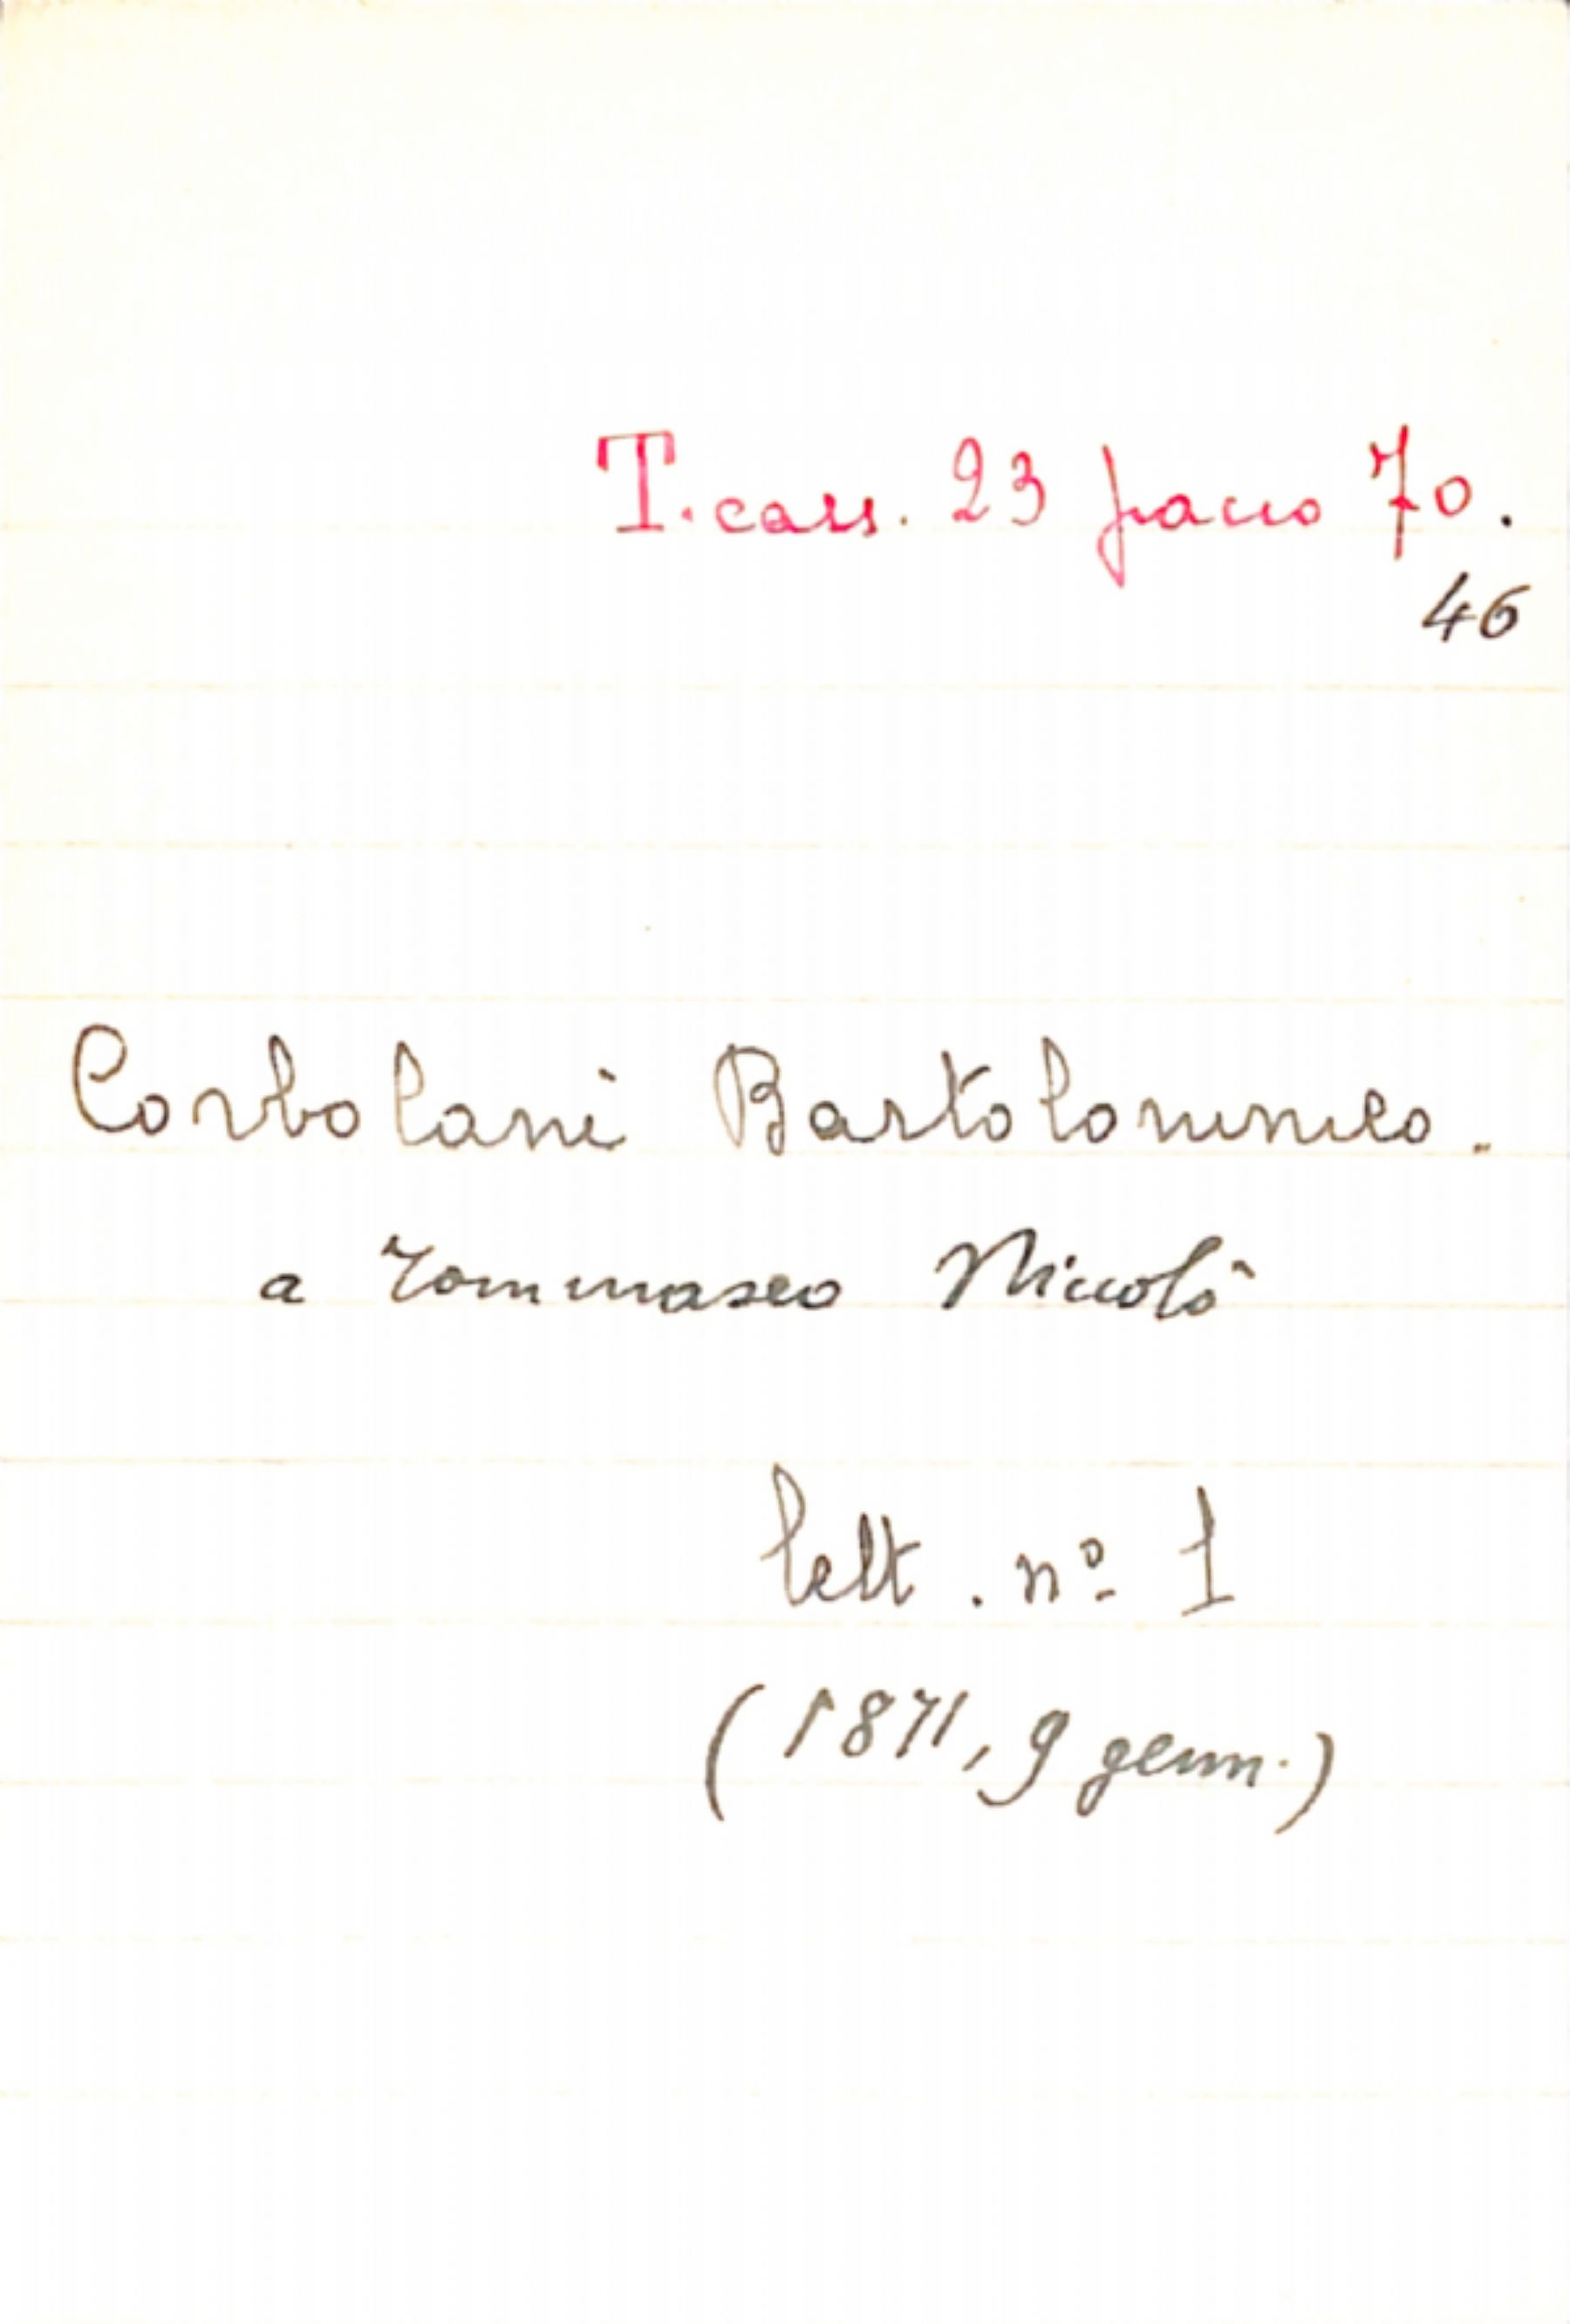 T. cass. 23 pacco 70.
46
Corbolani Bartolommeo.
a Tommaseo Niccolò
lett. nº 1
(1871, 9 genn.)